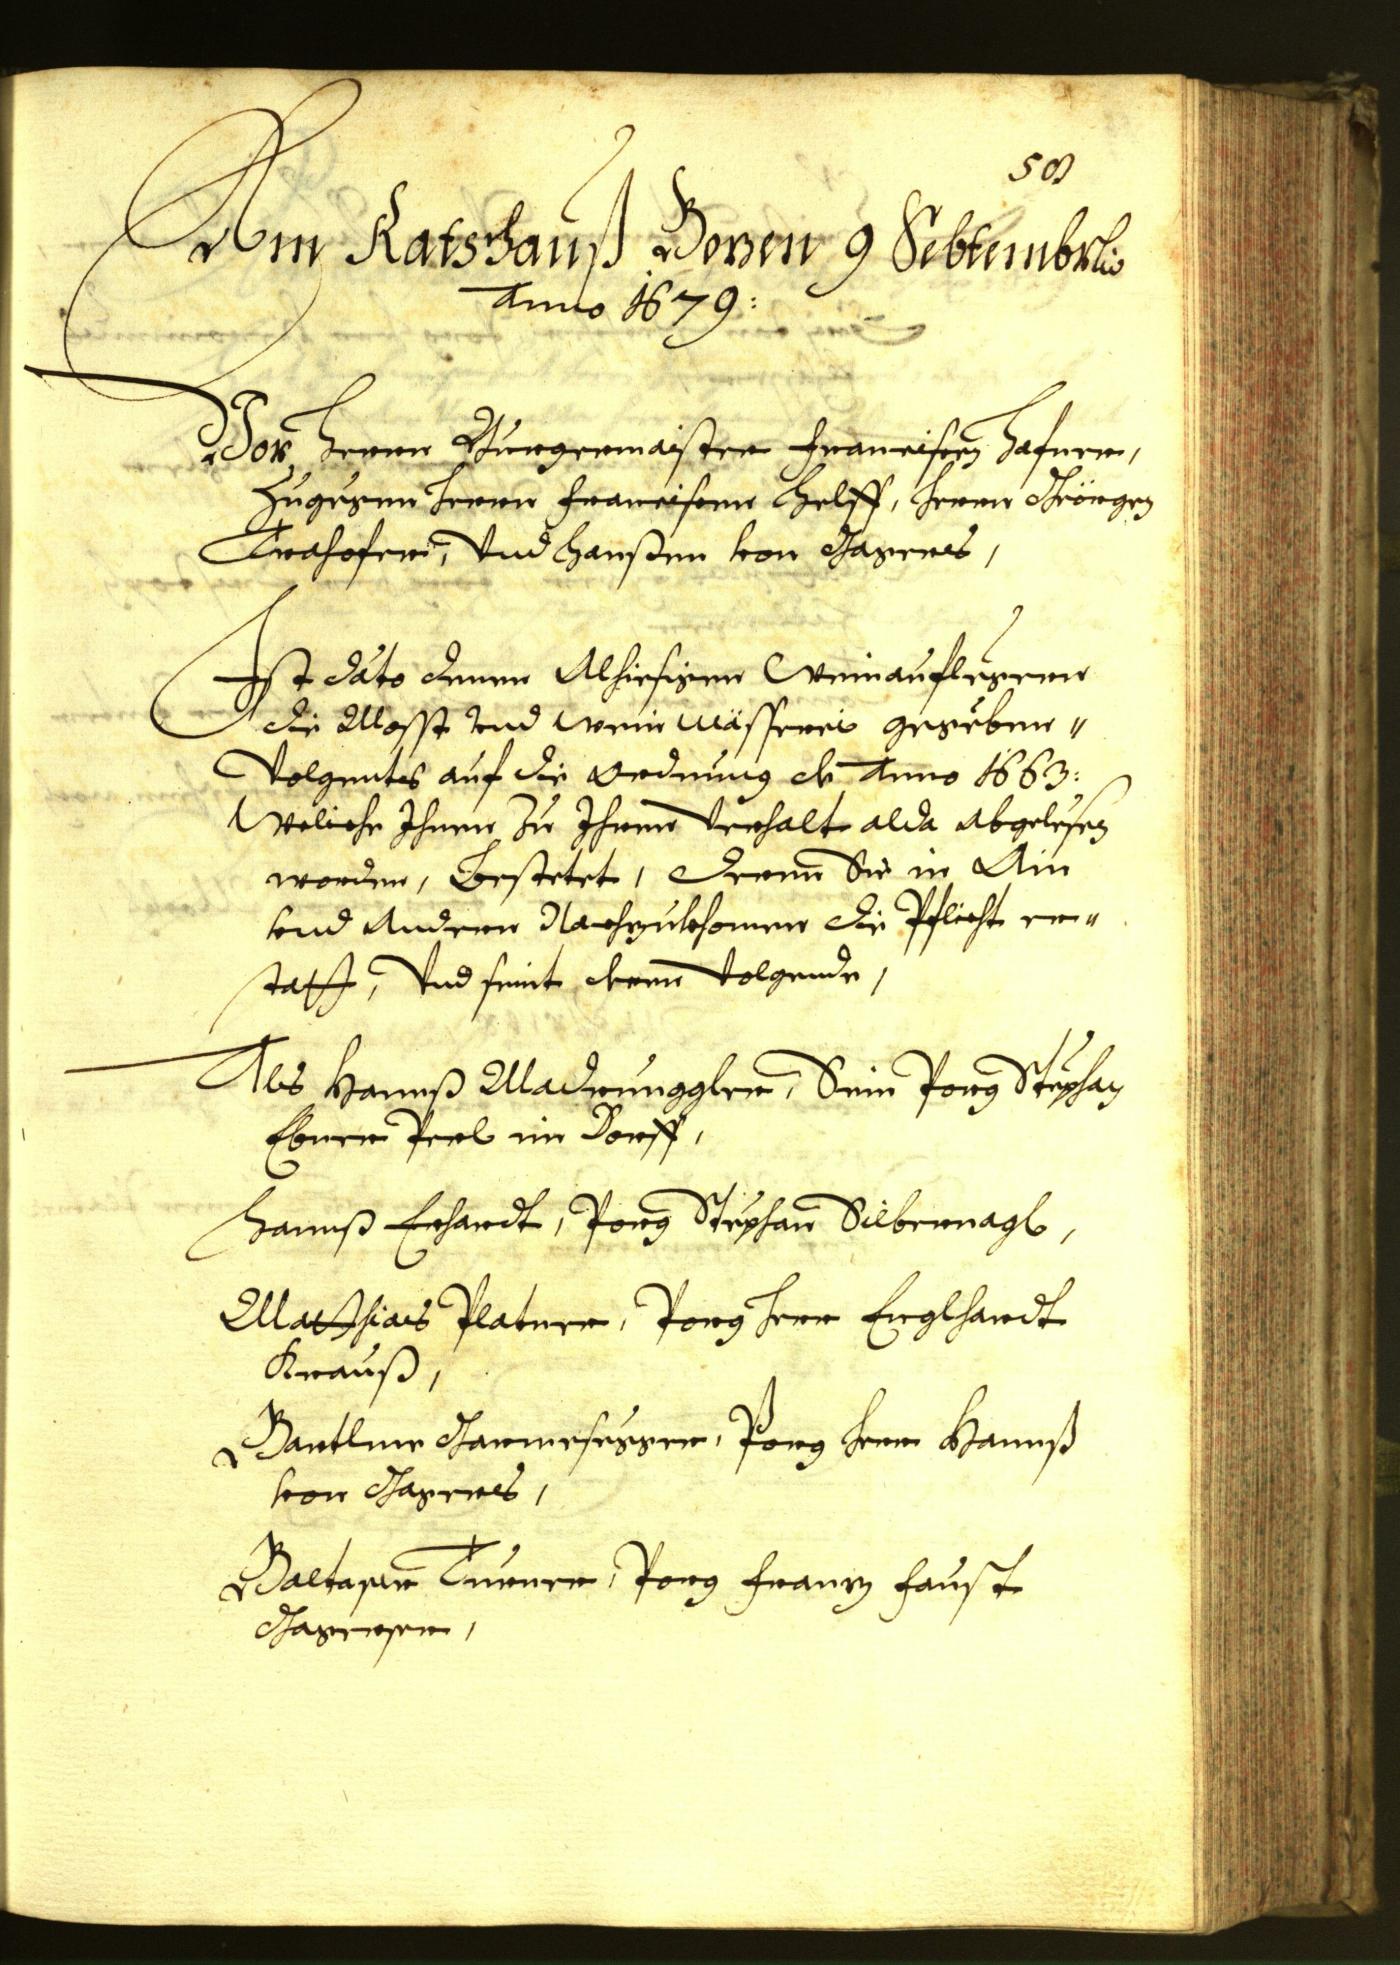 50
Am Ratshauß Bozen 9 Sebtembris
Anno 1679:
Vor herrn Burgermaister Francisen Hafner,
Zugegen herrn Francisen Helff, herrn Geörgen
und Hanßen von
Ist dato denen Alhiesigen Weinauflegern
die Mosst und Wein wässerei gegeben"
Volgentes auf die Ordnung de Anno 1663:
Weliche Ihnen zu Ihrem Verhalt alda abgelesen
worden, Bestetet, deren Sie in Ain
und Andern Nachzukhomen die Pflicht er"
statt, Und seint deren Volgende,
Als Hannß Madrungglen, Sein Porg Stephan
Ebner im Dorff,
Hannß Erhardt, Porg Stephan Silbernagl,
Matthias Platner, Porg herr Englhardt
Krauß,
Bartlme Porg herr Hannß
von
Baltaser Turner, Porg Franz Faust